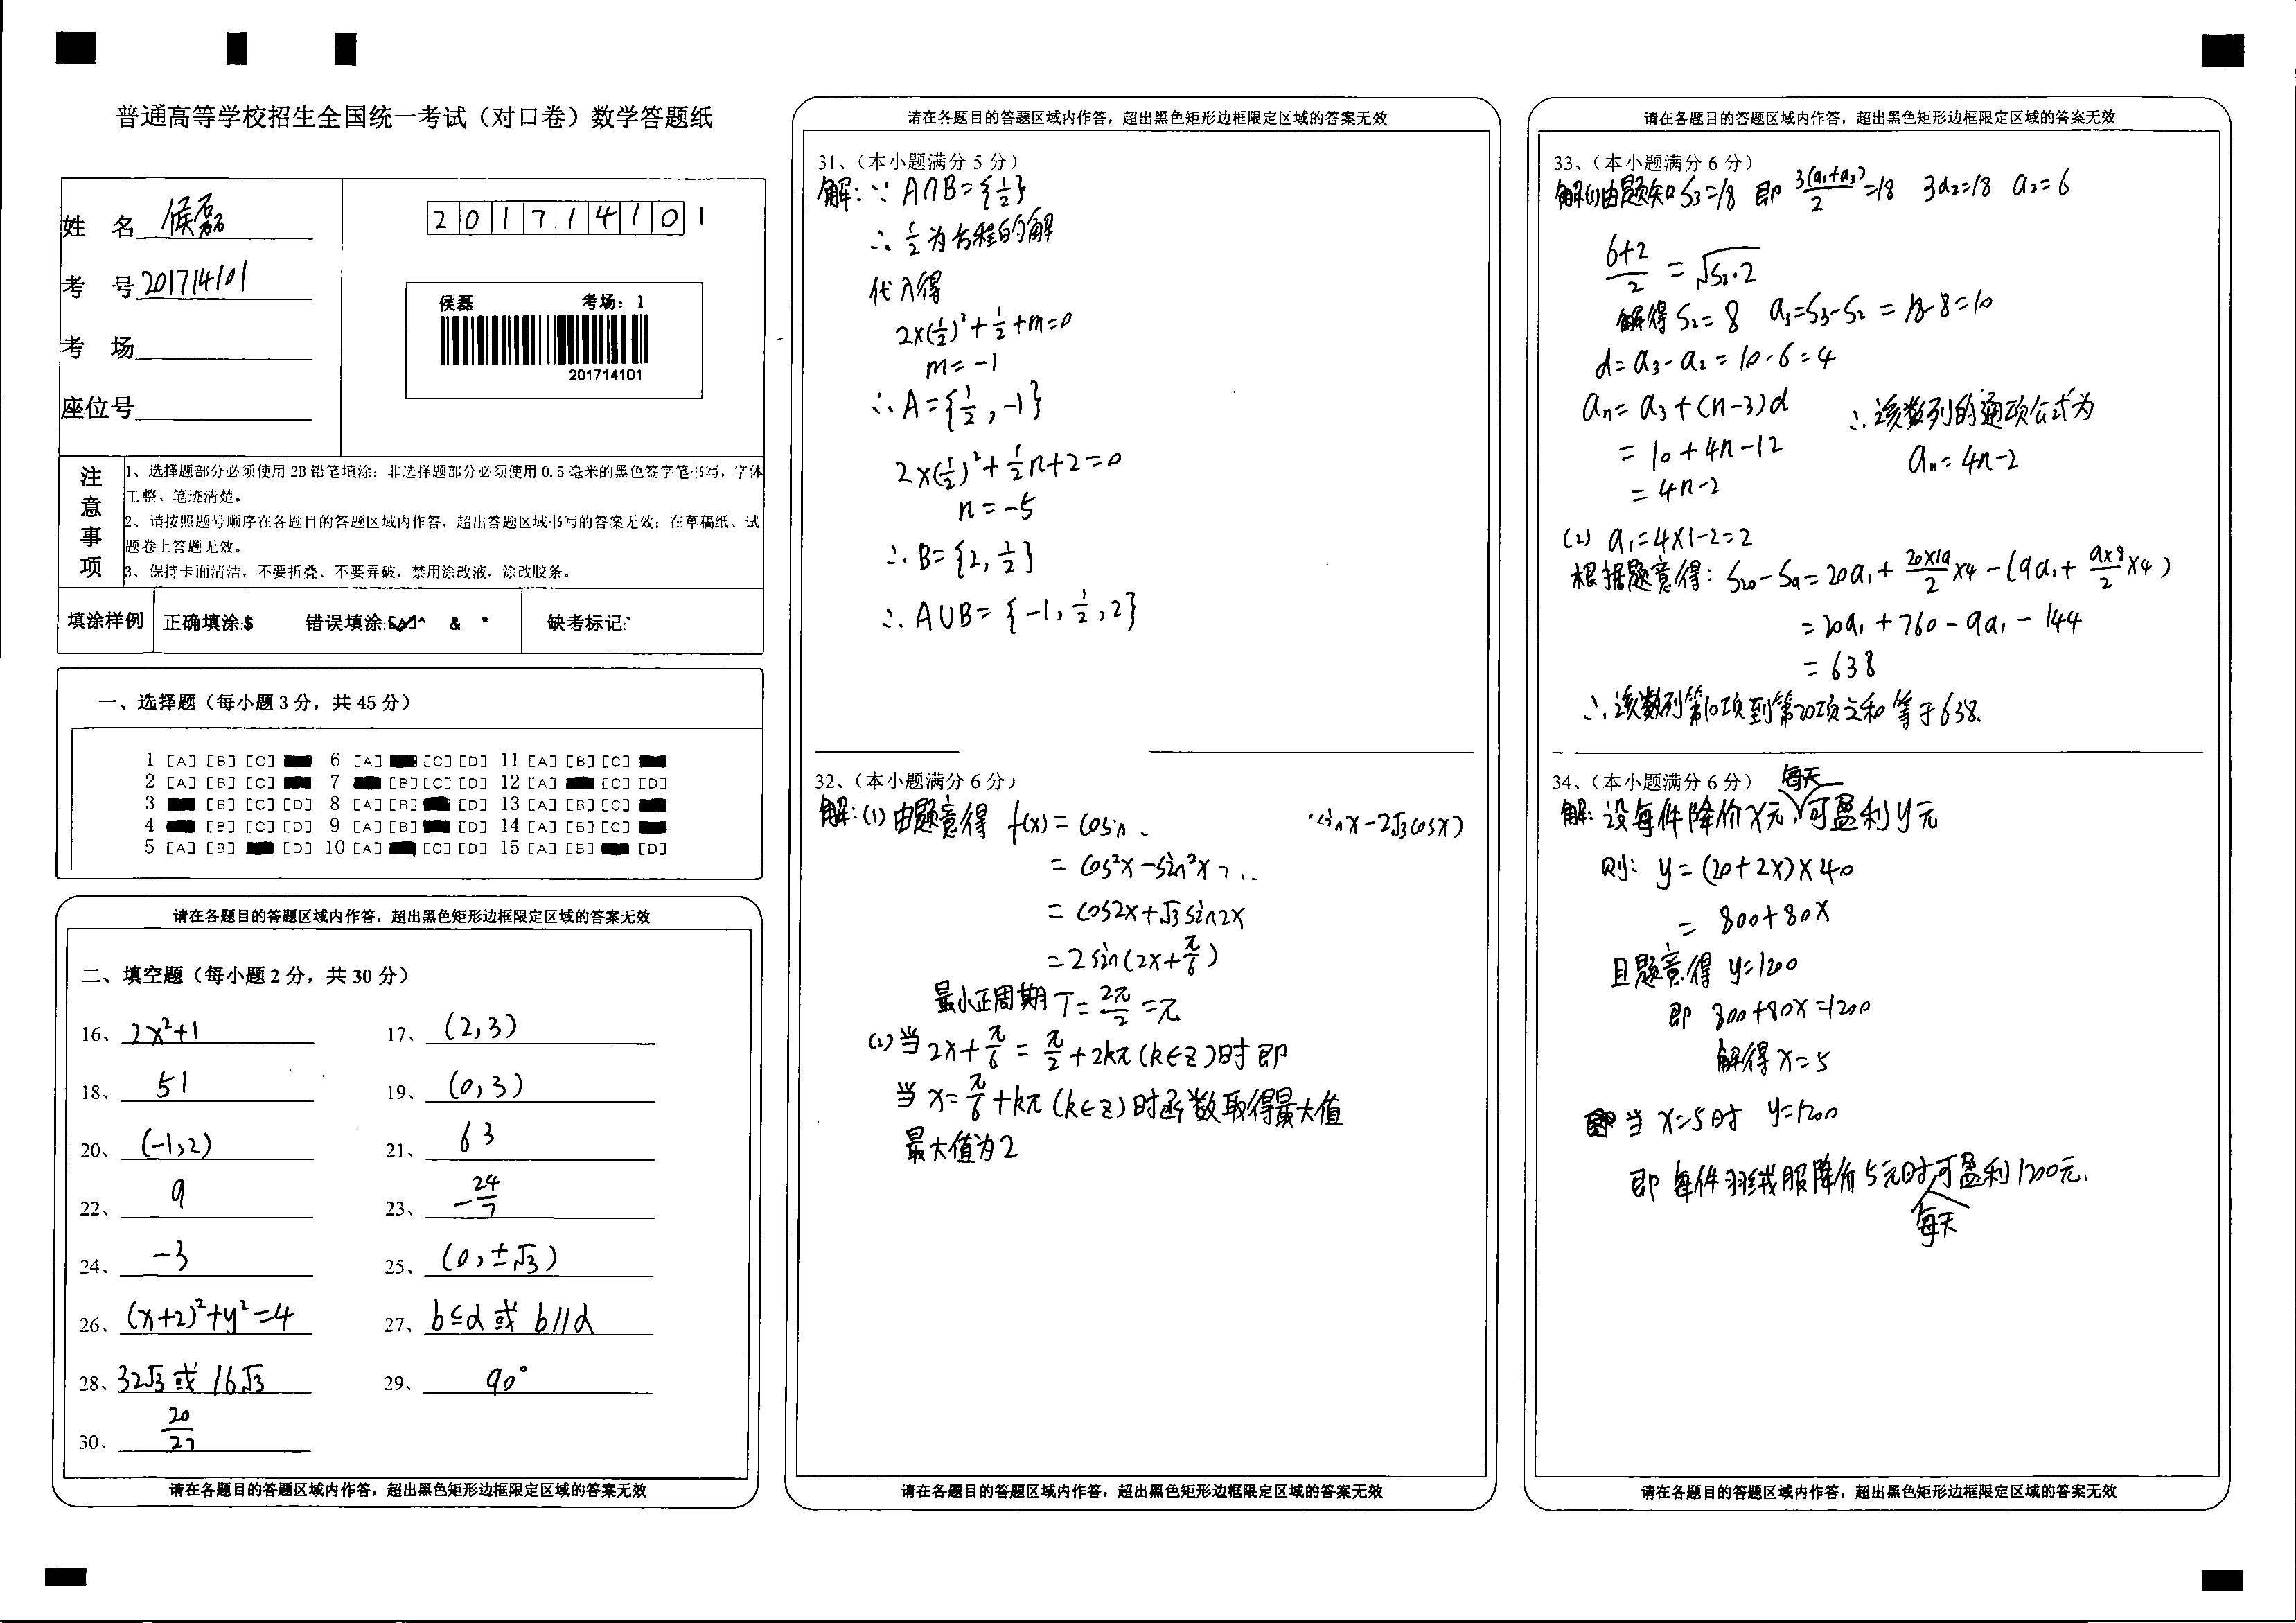 普通高等学校招生全国统一考试（对口卷）数学答题纸
姓 名 候磊
考 号 201714101
考 场
座位号
201714101
侯磊 考场：1
201714101
注意事项
1、选择题部分必须使用 2B 铅笔填涂；非选择题部分必须使用 0.5 毫米的黑色签字笔书写，字体
工整、笔迹清楚。
2、请按照题号顺序在各题目的答题区域内作答，超出答题区域书写的答案无效；在草稿纸、试
题卷上答题无效。
3、保持卡面清洁，不要折叠、不要弄破，禁用涂改液，涂改胶条。
填涂样例 正确填涂:$ 错误填涂: & * 缺考标记:
一、选择题（每小题 3 分，共 45 分）
1 [A] [B] [C] 6 [A] [C] [D] 11 [A] [B] [C]
2 [A] [B] [C] 7 [B] [C] [D] 12 [A] [C] [D]
3 [B] [C] [D] 8 [A] [B] [D] 13 [A] [B] [C]
4 [B] [C] [D] 9 [A] [B] [D] 14 [A] [B] [C]
5 [A] [B] [D] 10 [A] [C] [D] 15 [A] [B] [D]
请在各题目的答题区域内作答，超出黑色矩形边框限定区域的答案无效
二、填空题（每小题 2 分，共 30 分）
16、2x²+1 17、(2,3)
18、51 19、(0,3)
20、(-1,2) 21、63
22、9 23、-24/7
24、-3 25、(0,±√3)
26、(x+2)²+y²=4 27、b⊆α 或 b∥α
28、32√3 或 16√3 29、90°
30、20/27
请在各题目的答题区域内作答，超出黑色矩形边框限定区域的答案无效
请在各题目的答题区域内作答，超出黑色矩形边框限定区域的答案无效
31、（本小题满分 5 分）
解：∵ A∩B={1/2}
∴ 1/2 为方程的解
代入得
2×(1/2)²+1/2+m=0
m=-1
∴A={1/2,-1}
2×(1/2)²+1/2n+2=0
n=-5
∴B={2,1/2}
∴A∪B={-1,1/2,2}
32、（本小题满分 6 分）
解：(1) 由题意得 f(x)= cos sinx-2√3cosx)
= cos²x-sin²x
= cos2x+√3sin2x
=2sin(2x+π/6)
最小正周期T=2π/2=π
(2)当2x+π/6=π/2+2kπ(k∈Z)时即
当 x=π/6+kπ(k∈Z)时函数取得最大值
最大值为2
请在各题目的答题区域内作答，超出黑色矩形边框限定区域的答案无效
请在各题目的答题区域内作答，超出黑色矩形边框限定区域的答案无效
33、（本小题满分 6 分）
解(1)由题知S₃=18 即 3(a₁+a₃)/2=18 3a₂=18 a₂=6
6+2/2=√S₂·2
解得S₂=8 a₃=S₃-S₂=18-8=10
d=a₃-a₂=10-6=4
aₙ=a₃+(n-3)d ∴该数列的通项公式为
=10+4n-12 aₙ=4n-2
=4n-2
(2) a₁=4×1-2=2
根据题意得：S₂₀-S₉=20a₁+20×19/2×4-(9a₁+9×8/2×4)
=20a₁+760-9a₁-144
=638
∴该数列第10项到第20项之和等于638.
34、（本小题满分 6 分）
解：设每件降价x元，每天可盈利y元
则：y=(20+2x)×40
=800+80x
且题意得 y=1200
即 800+80x=1200
解得x=5
当 x=5时 y=1200
即每件羽绒服降价5元时每天可盈利1200元.
请在各题目的答题区域内作答，超出黑色矩形边框限定区域的答案无效